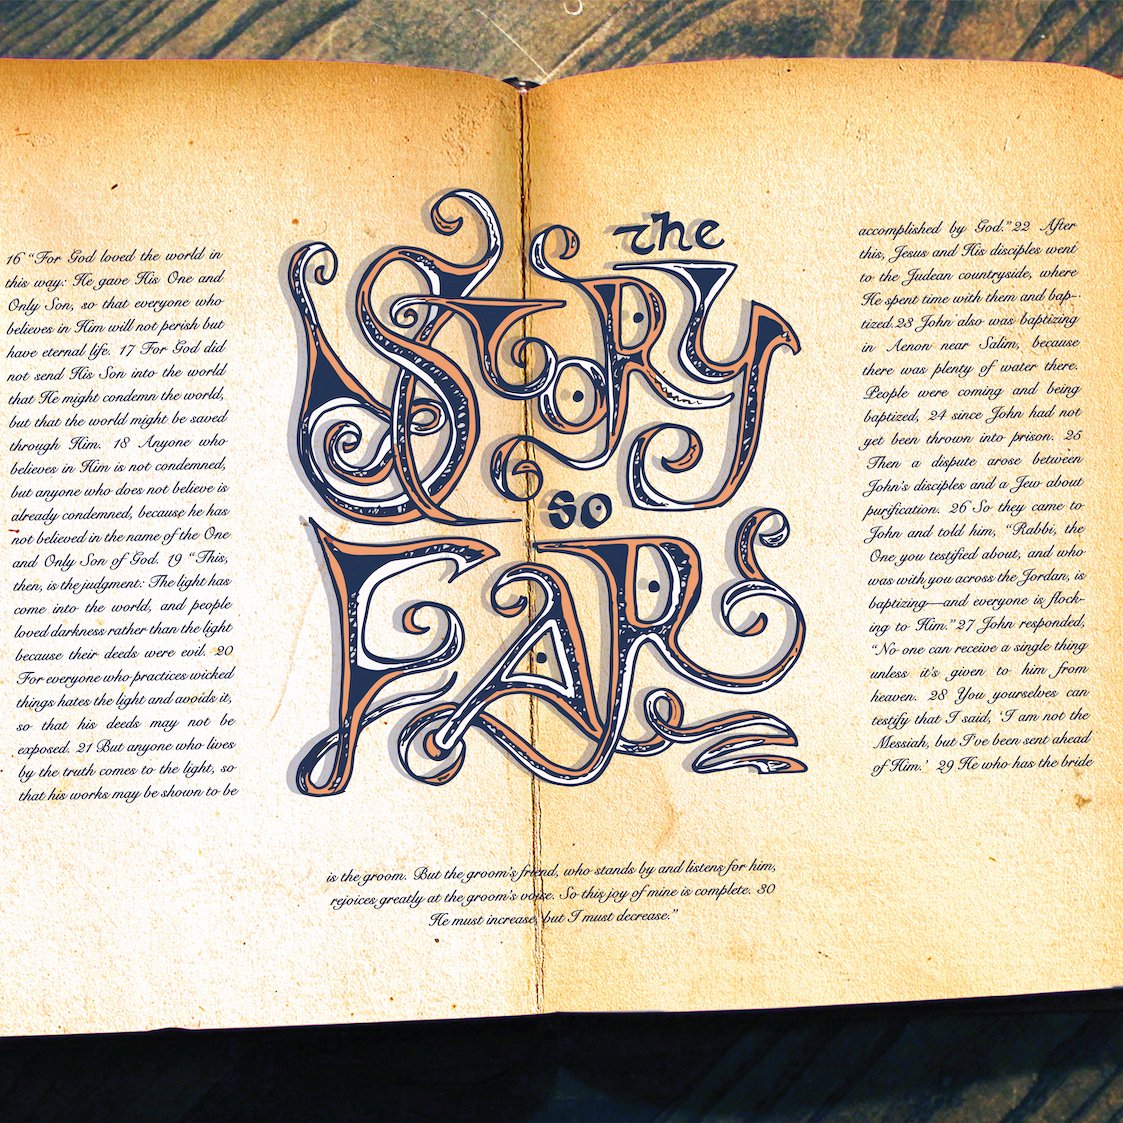 the
Story
so
FAR
16 “For God loved the world in
this way: He gave His One and
Only Son, so that everyone who
believes in Him will not perish but
have eternal life. 17 For God did
not send His Son into the world
that He might condemn the world,
but that the world might be saved
through Him. 18 Anyone who
believes in Him is not condemned,
but anyone who does not believe is
already condemned, because he has
not believed in the name of the One
and Only Son of God. 19 “This,
then, is the judgment: The light has
come into the world, and people
loved darkness rather than the light
because their deeds were evil. 20
For everyone who practices wicked
things hates the light and avoids it,
so that his deeds may not be
exposed. 21 But anyone who lives
by the truth comes to the light, so
that his works may be shown to be
accomplished by God.” 22 After
this, Jesus and His disciples went
to the Judean countryside, where
He spent time with them and bap-
tized.23 John also was baptizing
in Aenon near Salim, because
there was plenty of water there.
People were coming and being
baptized, 24 since John had not
yet been thrown into prison. 25
Then a dispute arose between
John's disciples and a Jew about
purification. 26 So they came to
John and told him, “Rabbi, the
One you testified about, and who
was with you across the Jordan, is
baptizing—and everyone is flock-
ing to Him.” 27 John responded,
“No one can receive a single thing
unless it's given to him from
heaven. 28 You yourselves can
testify that I said, ‘I am not the
Messiah, but I've been sent ahead
of Him.’ 29 He who has the bride
is the groom. But the groom's friend, who stands by and listens for him,
rejoices greatly at the groom's voice. So this joy of mine is complete. 30
He must increase, but I must decrease.”